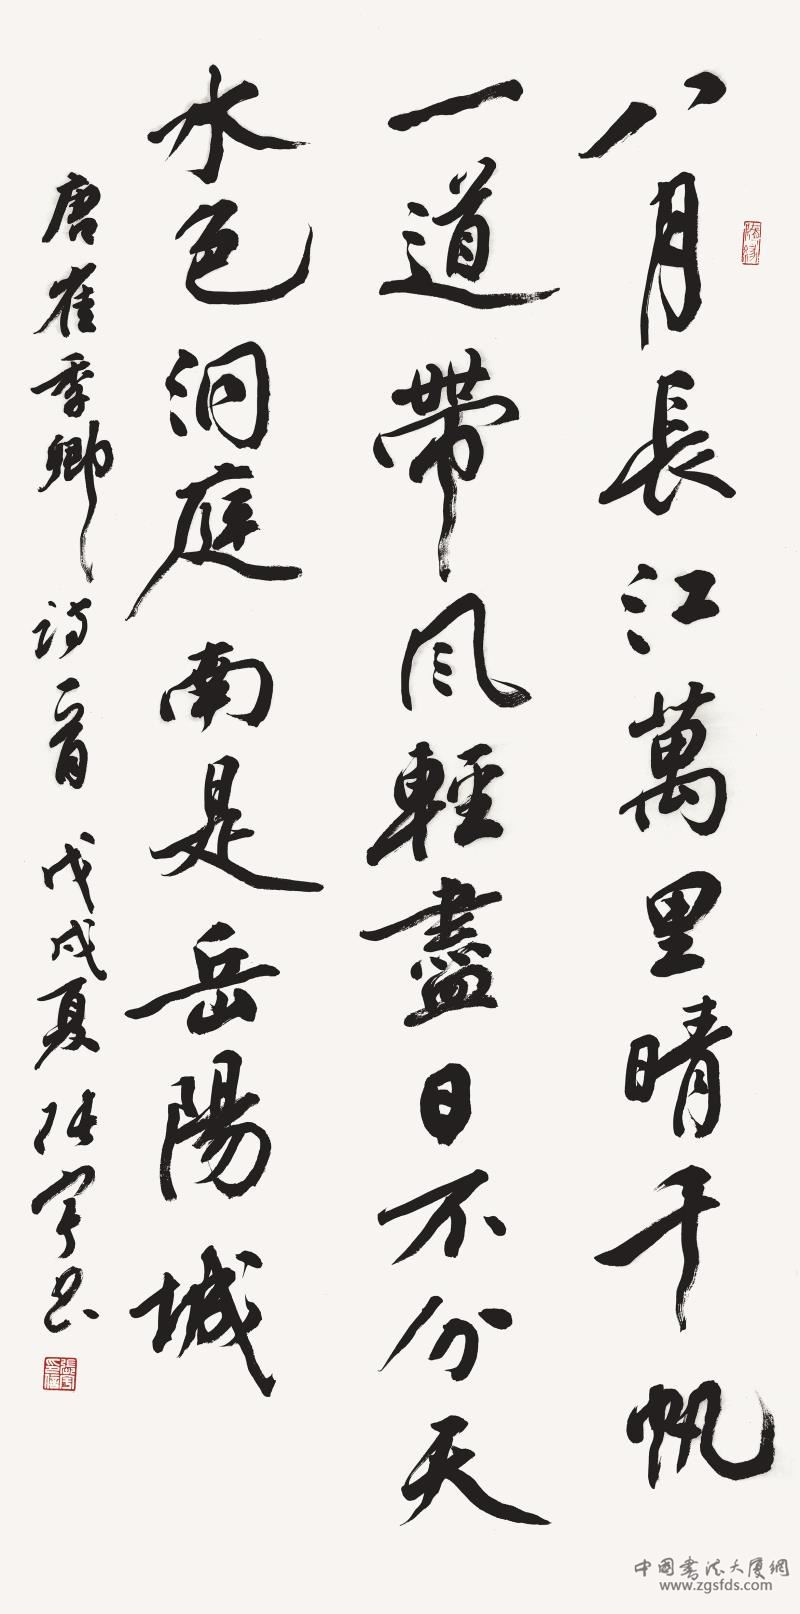 八月長江萬里晴千帆
一道帶風輕盡日不分天
水色洞庭南是岳陽城
唐崔季卿詩一首 戊戌夏 张宇书
中国書法大厦網
www.zgsfds.com